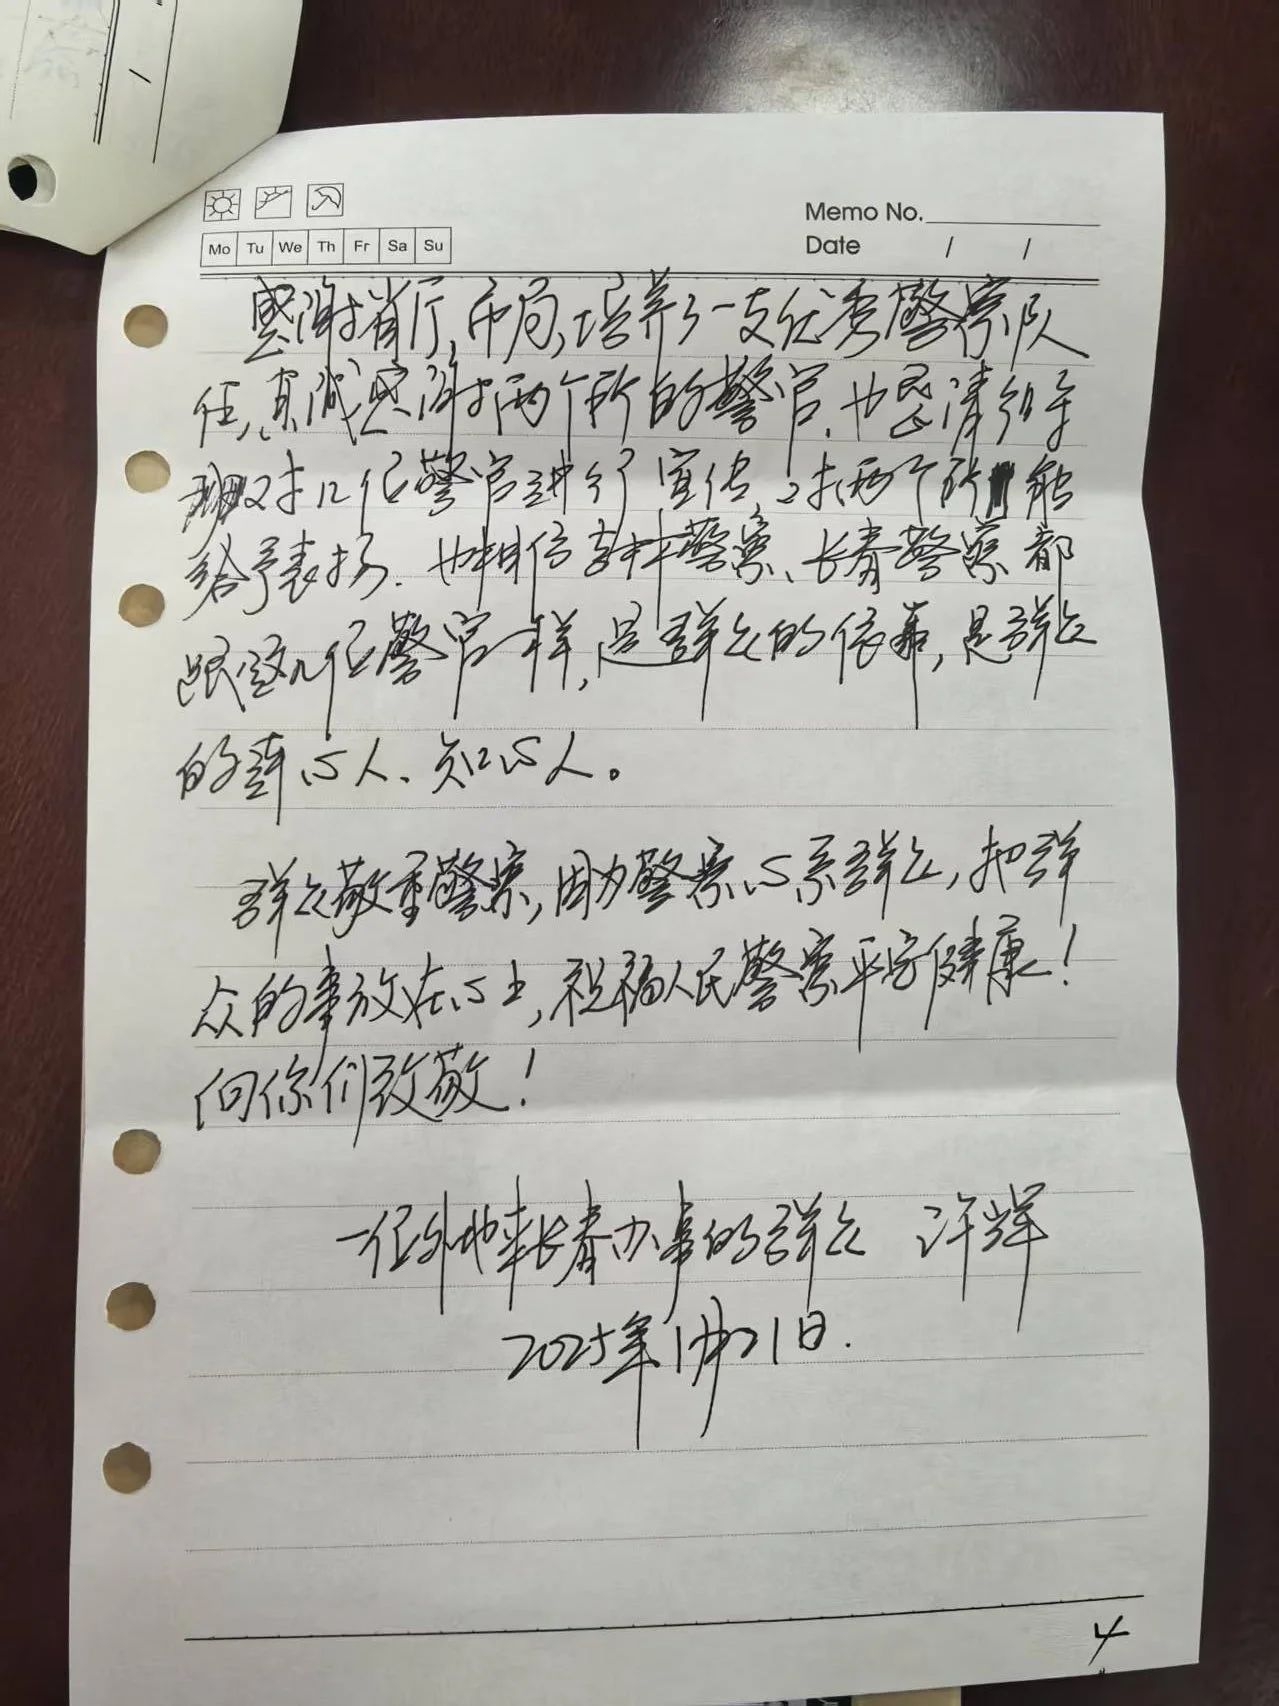 Memo No.
Mo Tu We Th Fr Sa Su
Date / /
感谢省厅、市局,培养了一支优秀警察队
伍,真诚感谢两个所的警官,也恳请领导
对几位警官进行宣传,对两个所能
给予表扬.也相信吉林警察、长春警察都
跟这几位警官一样,是群众的依靠,是群众
的牵心人、知心人。
群众敬重警察,因为警察心系群众,把群
众的事放在心上,祝福人民警察平安健康!
向你们致敬!
一位外地来长春办事的群众 许辉
2025年1月21日.
4